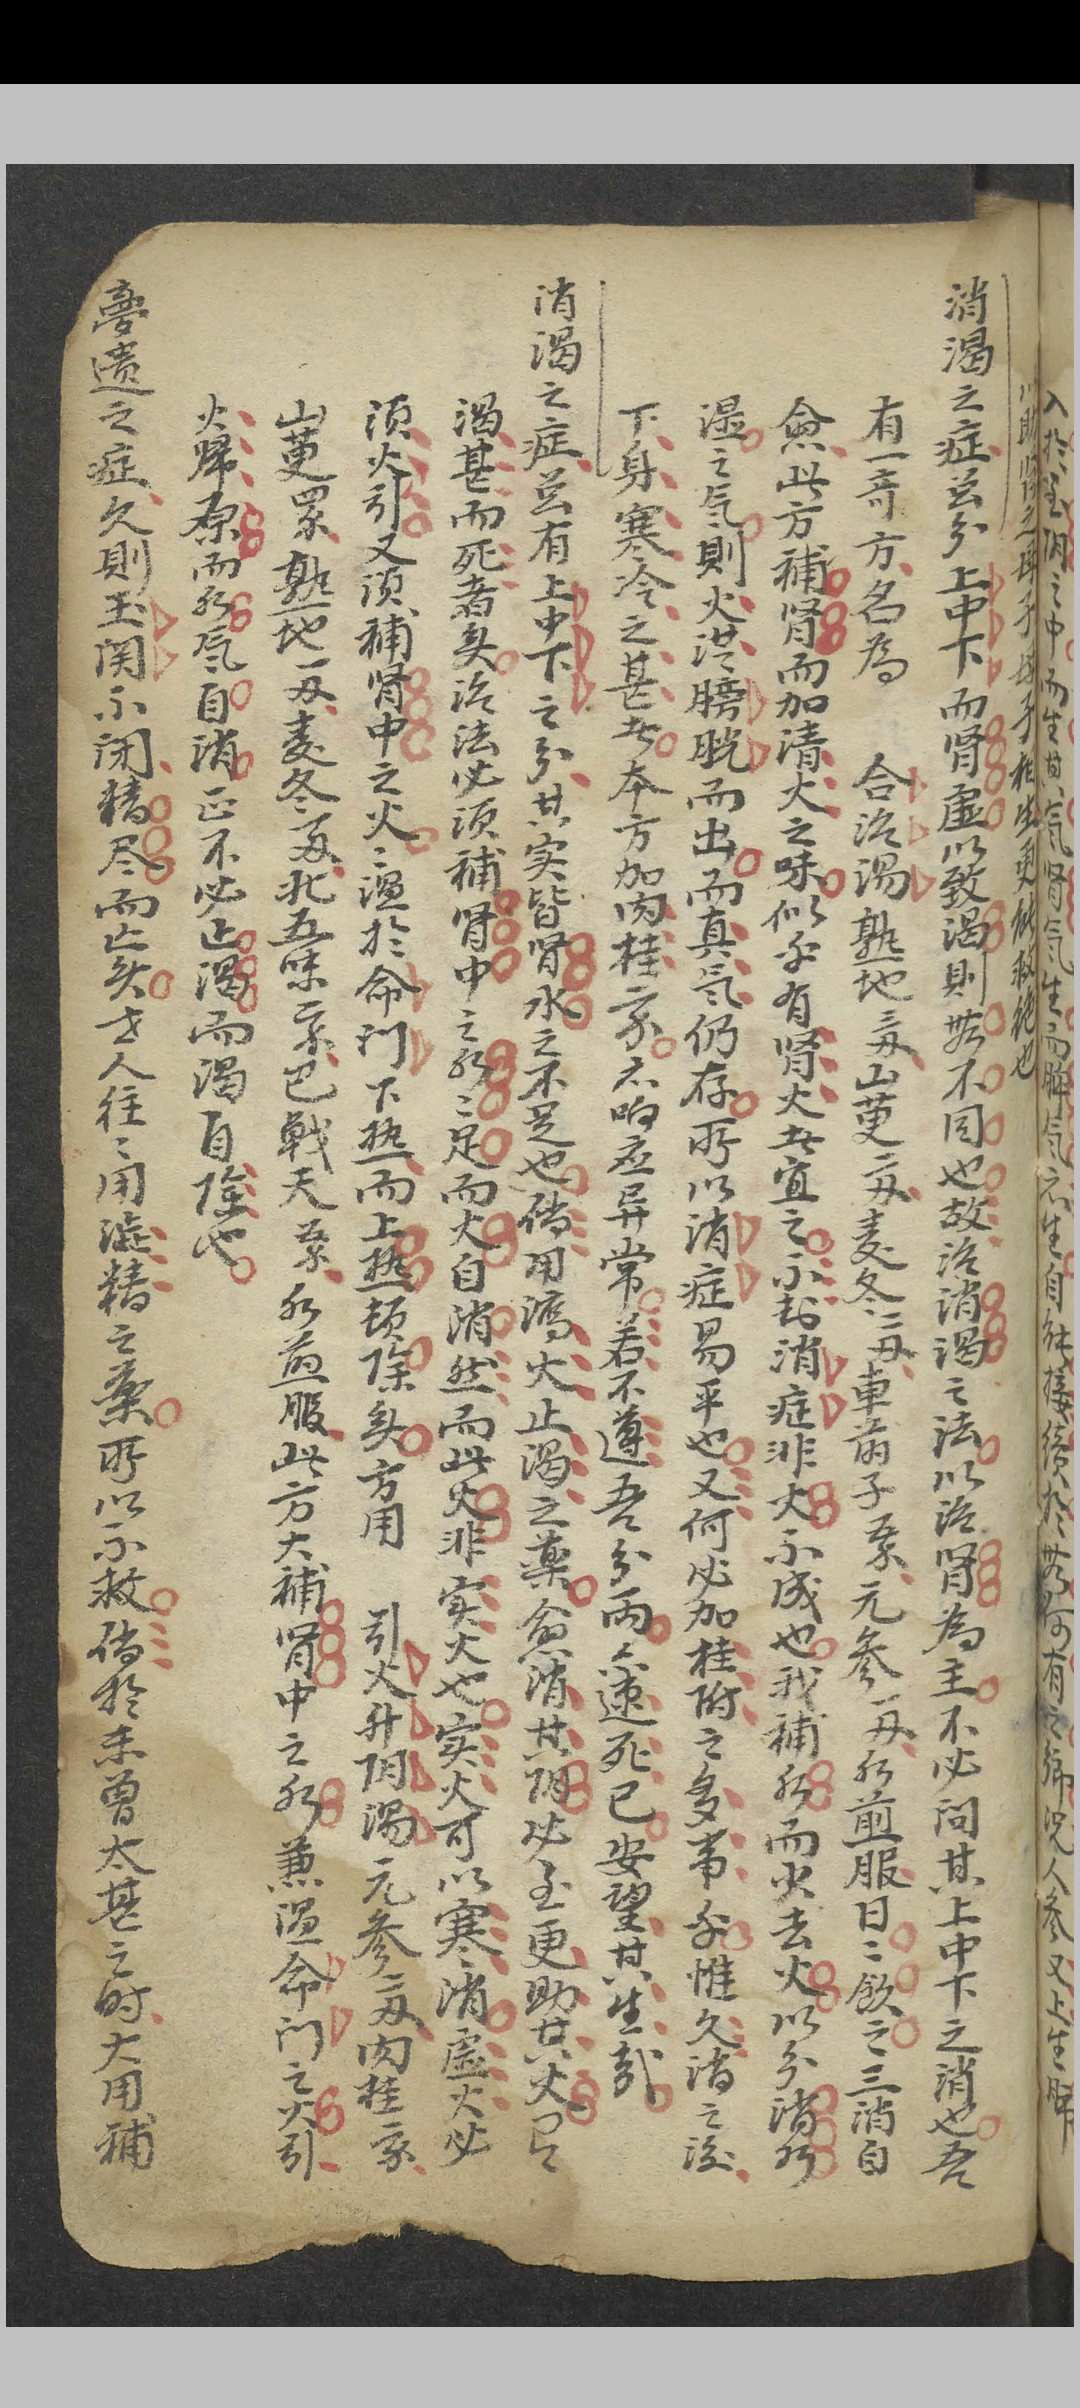 入於至阴之中而生其氣肾氣生而脾氣亦生自能接续於無何有之鄉况人參又上生脾
以助肾之母子母子相生更能救絶也
消渴之症並分上中下而肾虚以致渴則無不同也故治消渴之法以治肾為主不必问其上中下之消也吾
有一奇方名為 合治湯熟地三两山萸二两麦冬二两車前子五錢元參一两水煎服日〻飲之三消自
愈此方補肾而加清火之味似乎有肾火者宜之不知消症非火不成也我補水而火去火以分消水
湿之氣則火從膀胱而出而真氣仍存所以消症易平也又何必加桂附之多事乎惟久消之後
下身寒冷之甚者本方加肉桂二錢亦响应异常若不遵吾分两亦速死已安望其生哉
消渴之症並有上中下之分其实皆肾水之不足也倘用瀉火止渴之藥愈消其阴必至更助其火有
渴甚而死者矣治法必须補肾中之水〻足而火自消然而此火非实火也实火可以寒消虚火必
须火引又须補肾中之火〻温於命門下热而上热顿除矣方用 引火升阴湯元參二两肉桂二錢
山萸四錢熟地一两麦冬一两北五味二錢巴戟天五錢水煎服此方大補肾中之水兼温命門之火引
火歸原而水氣自消正不必止渴而渴自除也
夢遗之症久則玉関不闭精尽而亡矣世人往〻用澁精之藥所以不救倘於未曾太甚之時大用補